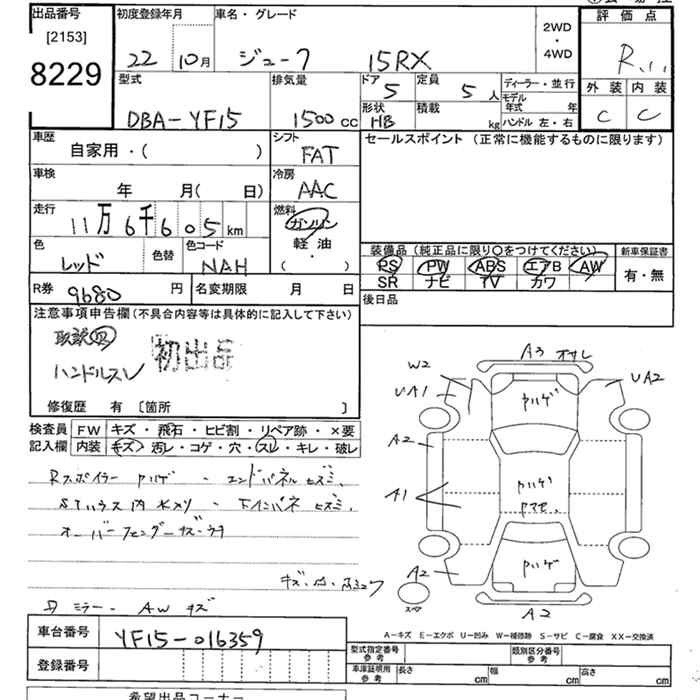 出品番号 初度登録年月 車名・グレード 2WD ・ 4WD 評価点
[2153]
8229
22 10月 ジューク 15RX R
型式 排気量 ドア 定員 ディーラー・並行 外装 内装
DBA-YF15 1500cc 5 5人 モデル年式 年 C C
形状 積載
HB kg ハンドル 左・右
車歴 シフト セールスポイント (正常に機能するものに限ります)
自家用・( ) FAT
車検 冷房
年 月( 日) AAC
走行 燃料
11万6千605km ガソリン
色 色替 色コード 軽油 装備品 (純正品に限り○をつけてください) 新車保証書
レッド NAH ( ・ ) PS PW ABS エアB AW 有・無
SR ナビ TV カワ
R券 9680円 名変期限 月 日 後日品
注意事項申告欄 (不具合内容等は具体的に記入して下さい)
取説 R 初出品
ハンドルスレ
修復歴 有 〔箇所 〕
検査員 FW キズ・飛石・ヒビ割・リペア跡・×要
記入欄 内装 キズ・汚レ・コゲ・穴・スレ・キレ・破レ
Rスポイラー ハゲ・エンドパネル ヒズミ.
オーバーフェンダーキズ
ミラー・AWキズ
A3 オサレ
W2
UA1 UA2
A2
A1
A2
A2
スペア
A-キズ E-エクボ U-凹み W-補修跡 S-サビ C-腐食 XX-交換済
車台番号 YF15-016359
登録番号
型式指定番号 参考 類別区分番号 参考
車庫証明用 参考 長さ cm 幅 cm 高さ cm
希望出品コーナー